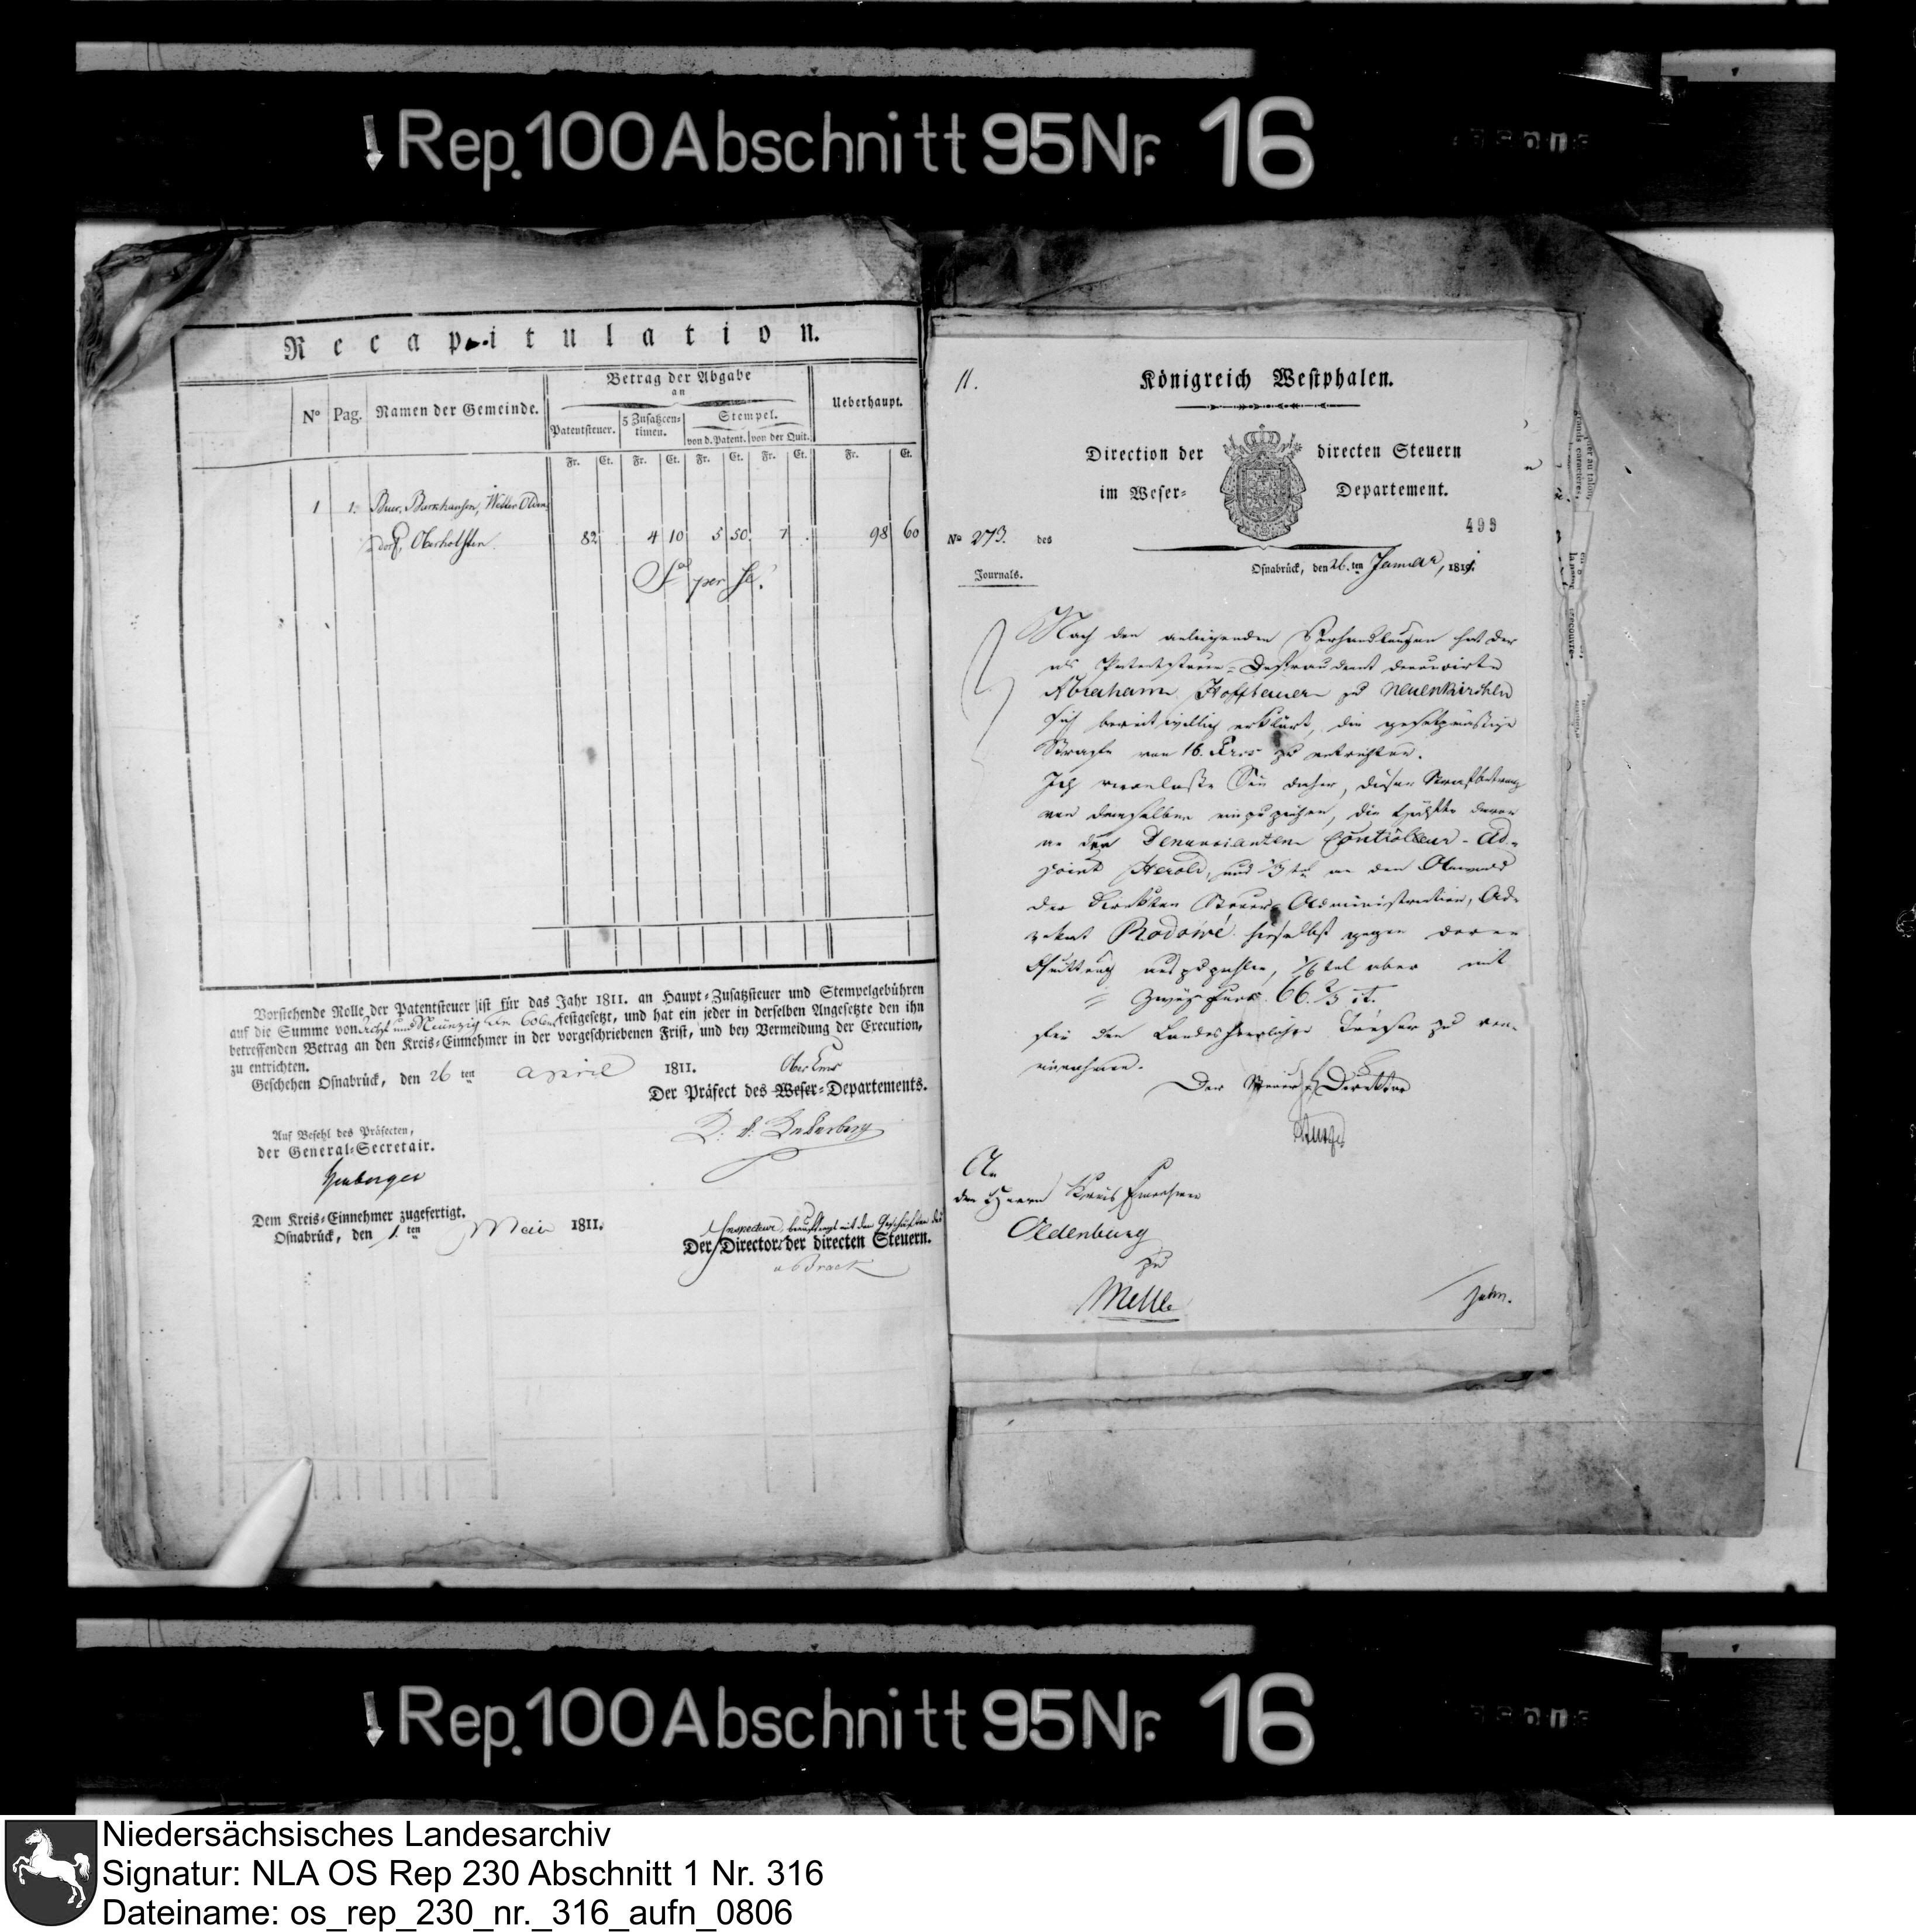 Rep. 100 Abschnitt 95 Nr. 16
Recapitulation.
Nº Pag. Namen der Gemeinde. Betrag der Abgabe an Ueberhaupt.
Patentsteuer. 5 Zusatzcen-timen. Stempel.
von d. Patent. von der Quit.
Fr. Ct. Fr. Ct. Fr. Ct. Fr. Ct. Fr. Ct.
1 1. Buer, Barkhausen, Wetter, Olden
dorf, Oberholsten 82 . 4 10 5 50 7 . 98 60
Sª per se.
Vorstehende Rolle der Patentsteuer ist für das Jahr 1811. an Haupt-Zusatzsteuer und Stempelgebühren
auf die Summe von Acht und Neunzig Fr. 60 Cent festgesetzt, und hat ein jeder in derselben Angesetzte den ihn
betreffenden Betrag an den Kreis-Einnehmer in der vorgeschriebenen Frist, und bey Vermeidung der Execution,
zu entrichten.
Geschehen Osnabrück, den 26 ten April 1811. Ober Ems
Der Präfect des Weser-Departements.
Auf Befehl des Präfecten,
der General-Secretair.
Dem Kreis-Einnehmer zugefertigt.
Osnabrück, den 1. ten Mai 1811.
Inspecteur, beauftragt mit den Geschäften des
Der Director der directen Steuern.
11.
Königreich Westphalen.
Direction der directen Steuern
im Weser- Departement.
499
Nº 273. des
Journals.
Osnabrück, den 26. ten Januar, 1811.
Nach den anliegenden Verhandlungen hat der
als Patentsteuer-Defraudant denuncirte
Abraham Hoffbauer zu Neuenkirchen
sich bereitwillig erklärt, die gesetzmäßige
Strafe von 16. Frcs zu entrichten.
Ich veranlasse Sie daher, diesen Strafbetrag
von demselben einzuziehen, die Hälfte davon
an den Denuncianten Controlleur-Ad-
joint Herold, und 1/3 tel an den Anwald
der directen Steuer-Administration, Ad-
vokat Rodowé hieselbst gegen deren
Quittung auszuzahlen, 1/6 tel aber mit
Zwey Frcs. 66 2/3 Ct.
für den Landesherrlichen Tresor zu ver-
einnahmen.
Der Steuer-Direktor
An
den Herrn Kreis Einnehmer
Oldenburg
zu
Melle
Rep. 100 Abschnitt 95 Nr. 16
Niedersächsisches Landesarchiv
Signatur: NLA OS Rep 230 Abschnitt 1 Nr. 316
Dateiname: os_rep_230_nr._316_aufn_0806